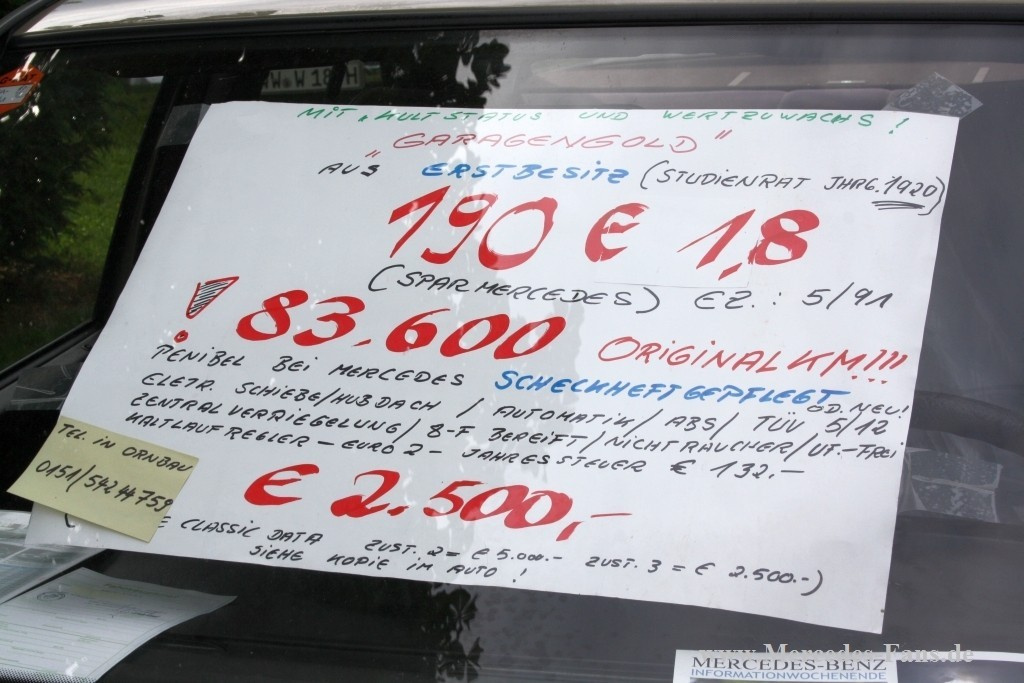 W·W 18 H
MIT „KULTSTATUS UND WERTZUWACHS!
„GARAGENGOLD"
AUS ERSTBESITZ (STUDIENRAT JHRG. 1920)
190 E 1,8
(SPARMERCEDES) EZ.: 5/91
! 83.600 ORIGINALKM!!!
PENIBEL BEI MERCEDES SCHECKHEFTGEPFLEGT
OD. NEU!
ELETR. SCHIEBE/HUBDACH / AUTOMATIK/ABS/ TÜV 5/12
ZENTRALVERRIEGELUNG/8-F BEREIFT/NICHTRAUCHER/UF.-FREI
KALTLAUFREGLER - EURO 2 - JAHRESSTEUER € 132.-
TEL. IN ORNBAU
0151/54244759
€ 2.500,-
CLASSIC DATA ZUST. 2 = € 5.000.- ZUST. 3 = € 2.500.-)
SIEHE KOPIE IM AUTO!
www.Mercedes-Fans.de
MERCEDES-BENZ
INFORMATIONWOCHENENDE